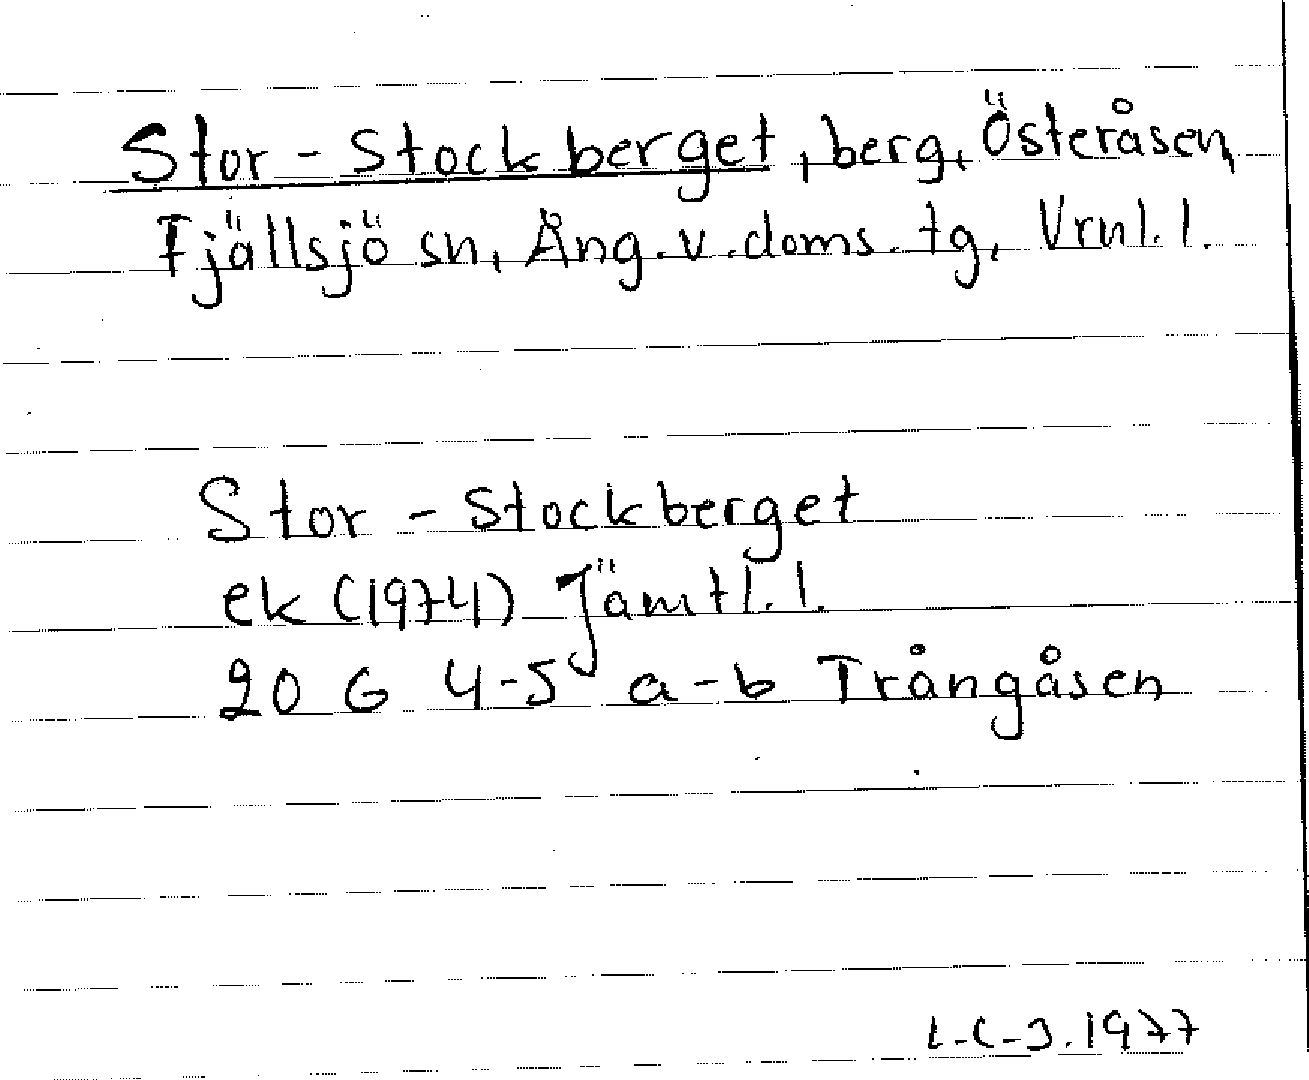 Stor-Stockberget, berg, Österåsen,
Fjällsjö sn, Ång. v. doms. tg, Vrnl. l.
Stor-Stockberget
ek (1974) Jämtl. l.
20 G 4-5 a-b Trångåsen
L-C-J. 1977